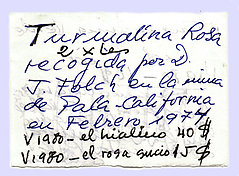 Turmalina Rosa
2 xles
recogida por D.
J. Folch en la mina
de Pala-California
en Febrero 1974
V 1980 - el hialino 40 $
V 1980 - el rosa sucio 15 $